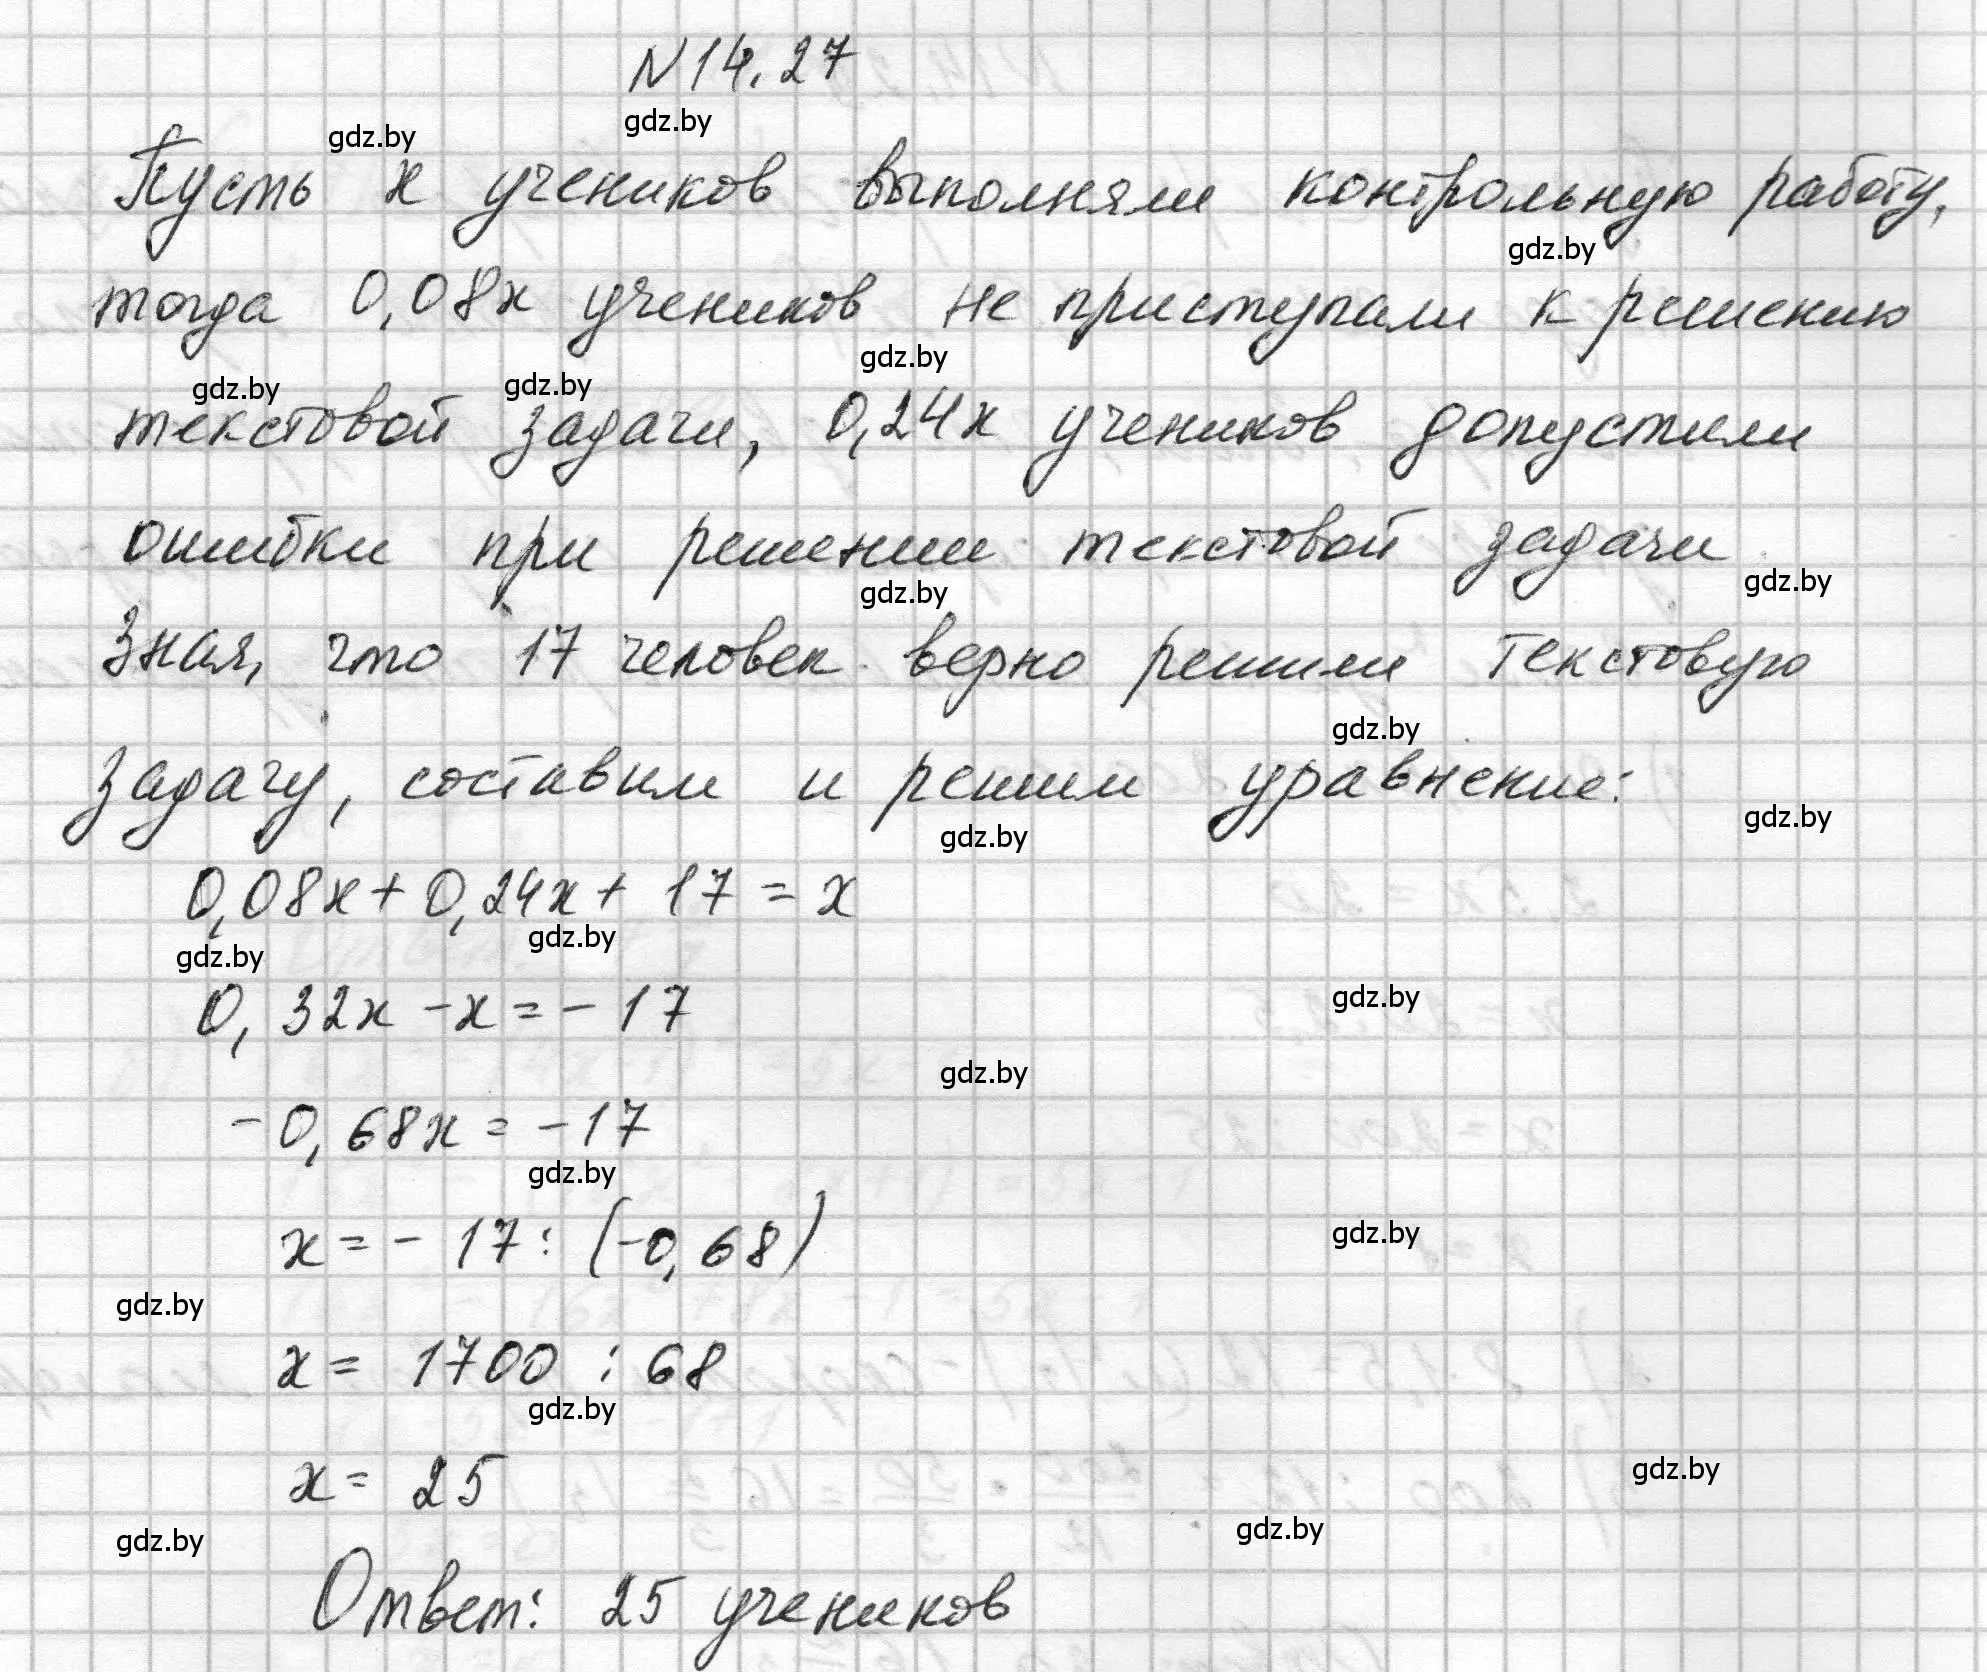 N14.27
gdz.by gdz.by
Пусть x учеников выполняли контрольную работу,
gdz.by
тогда 0,08x учеников не приступали к решению
gdz.by gdz.by gdz.by
текстовой задачи, 0,24x учеников допустили
ошибки при решении текстовой задачи
gdz.by gdz.by
Зная, что 17 человек верно решили текстовую
gdz.by
задачу, составим и решим уравнение:
gdz.by gdz.by
0,08x + 0,24x + 17 = x
gdz.by gdz.by
0,32x - x = - 17
gdz.by
gdz.by
- 0,68x = - 17
gdz.by
x = - 17 : (-0,68)
gdz.by
gdz.by
x = 1700 : 68
gdz.by
x = 25
gdz.by
gdz.by gdz.by
Ответ: 25 учеников